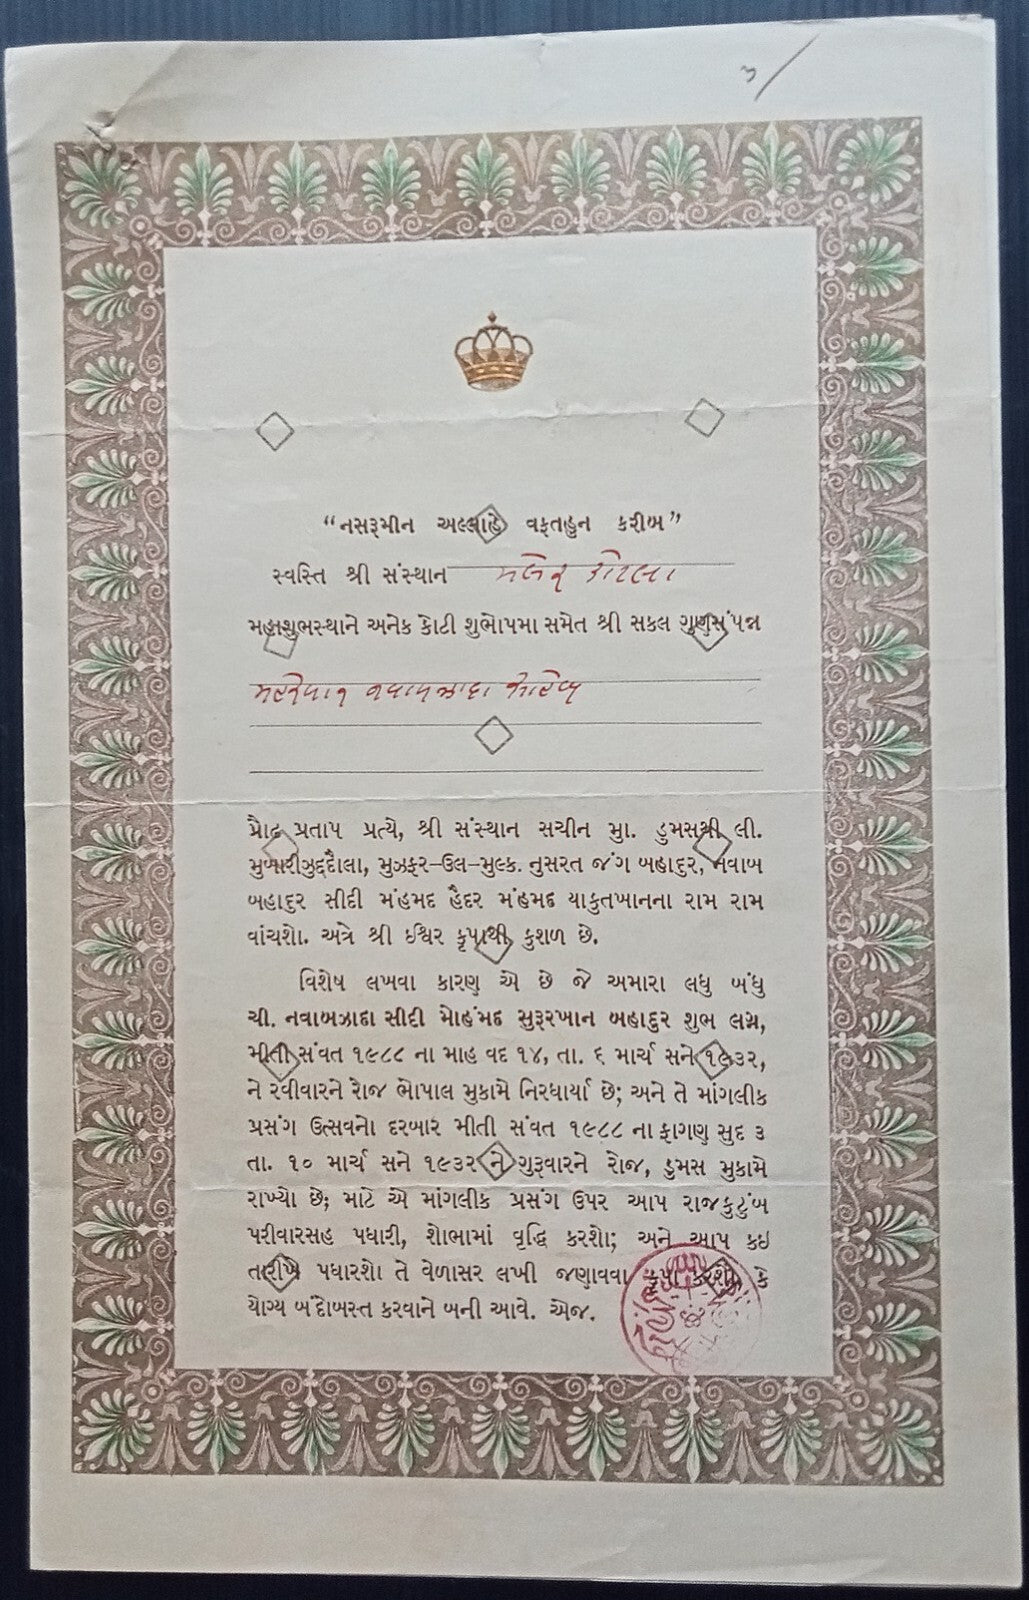 ૩/
“નસરૂમીન અલ્લાહે વફતહુન કરીબ”
સ્વસ્તિ શ્રી સંસ્થાન મલેર કોટલા
મહાશુભસ્થાને અનેક કોટી શુભોપમા સમેત શ્રી સકલ ગુણસંપન્ન
મહેરબાન નવાબઝાદા સાહેબ
પ્રૌઢ પ્રતાપ પ્રત્યે, શ્રી સંસ્થાન સચીન મુા. ડુમસથી લી.
મુબારીઝુદ્દૌલા, મુઝફર-ઉલ-મુલ્ક. નુસરત જંગ બહાદુર, નવાબ
બહાદુર સીદી મંહમદ હૈદર મંહમદ યાકુતખાનના રામ રામ
વાંચશો. અત્રે શ્રી ઈશ્વિર કૃપાથી કુશળ છે.
વિશેષ લખવા કારણ એ છે જે અમારા લઘુ બંધુ
ચી. નવાબઝાદા સીદી મોહંમદ સુરૂરખાન બહાદુર શુભ લગ્ન,
મીતી સંવત ૧૯૮૮ ના માહ વદ ૧૪, તા. ૬ માર્ચ સને ૧૯૩૨,
ને રવીવારને રોજ ભોપાલ મુકામે નિરધાર્યા છે; અને તે માંગલીક
પ્રસંગ ઉત્સવનો દરબાર મીતી સંવત ૧૯૮૮ ના ફાગણ સુદ ૩
તા. ૧૦ માર્ચ સને ૧૯૩૨ ને ગુરૂવારને રોજ, ડુમસ મુકામે
રાખ્યો છે; માટે એ માંગલીક પ્રસંગ ઉપર આપ રાજકુટુંબ
પરીવારસહ પધારી, શોભામાં વૃદ્ધિ કરશો; અને આપ કઇ
તારીખે પધારશો તે વેળાસર લખી જણાવવા કૃપા કરશો કે
યોગ્ય બંદોબસ્ત કરવાને બની આવે. એજ.